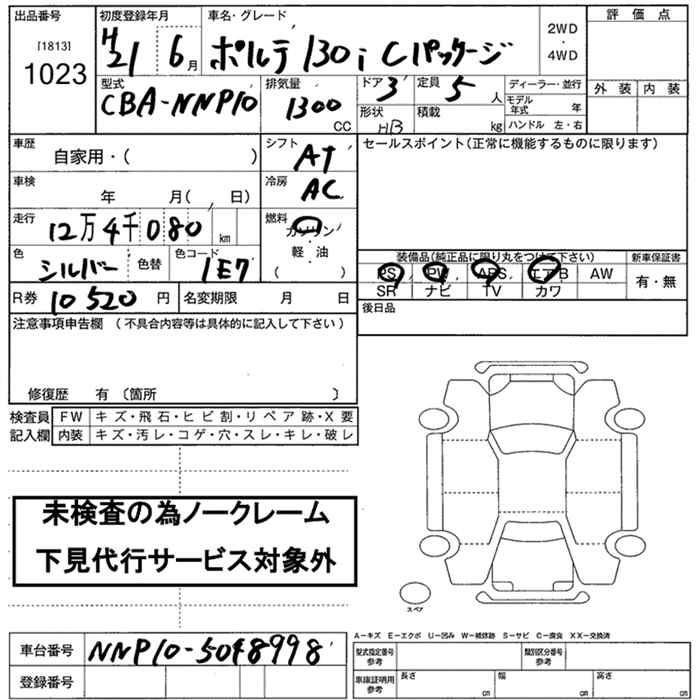 出品番号 初度登録年月 車名・グレード 2WD・4WD 評価点
[1813]
1023 H21 6月 ポルテ 130i Cパッケージ
型式 排気量 ドア 定員 ディーラー・並行 外装 内装
CBA-NNP10 1300CC 3 5人 モデル年式 年
形状 積載
HB kg ハンドル 左・右
車歴 シフト セールスポイント(正常に機能するものに限ります)
自家用・( ) AT
車検 冷房
年 月( 、 日) AC
走行 燃料
12万4千080km ガソリン・軽・油
色 色替 色コード ( ) 装備品(純正品に限り丸をつけて下さい) 新車保証書
シルバー 1E7 PS PW ABS エアB AW 有・無
SR ナビ TV カワ
R券 10520円 名変期限 月 日 後日品
注意事項申告欄 (不具合内容等は具体的に記入して下さい)
修復歴 有 〔箇所 〕
検査員 FW キズ・飛石・ヒビ割・リペア跡・X要
記入欄 内装 キズ・汚レ・コゲ・穴・スレ・キレ・破レ
未検査の為ノークレーム
下見代行サービス対象外
スペア
A=キズ E=エクボ U=凹み W=補修跡 S=サビ C=腐食 XX=交換済
車台番号 NNP10-5048998 型式指定番号 参考 類別区分番号 参考
登録番号 車庫証明用 参考 長さ cm 幅 cm 高さ cm